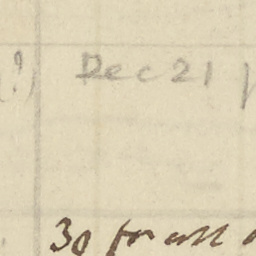 (?) Dec 21
30 for all